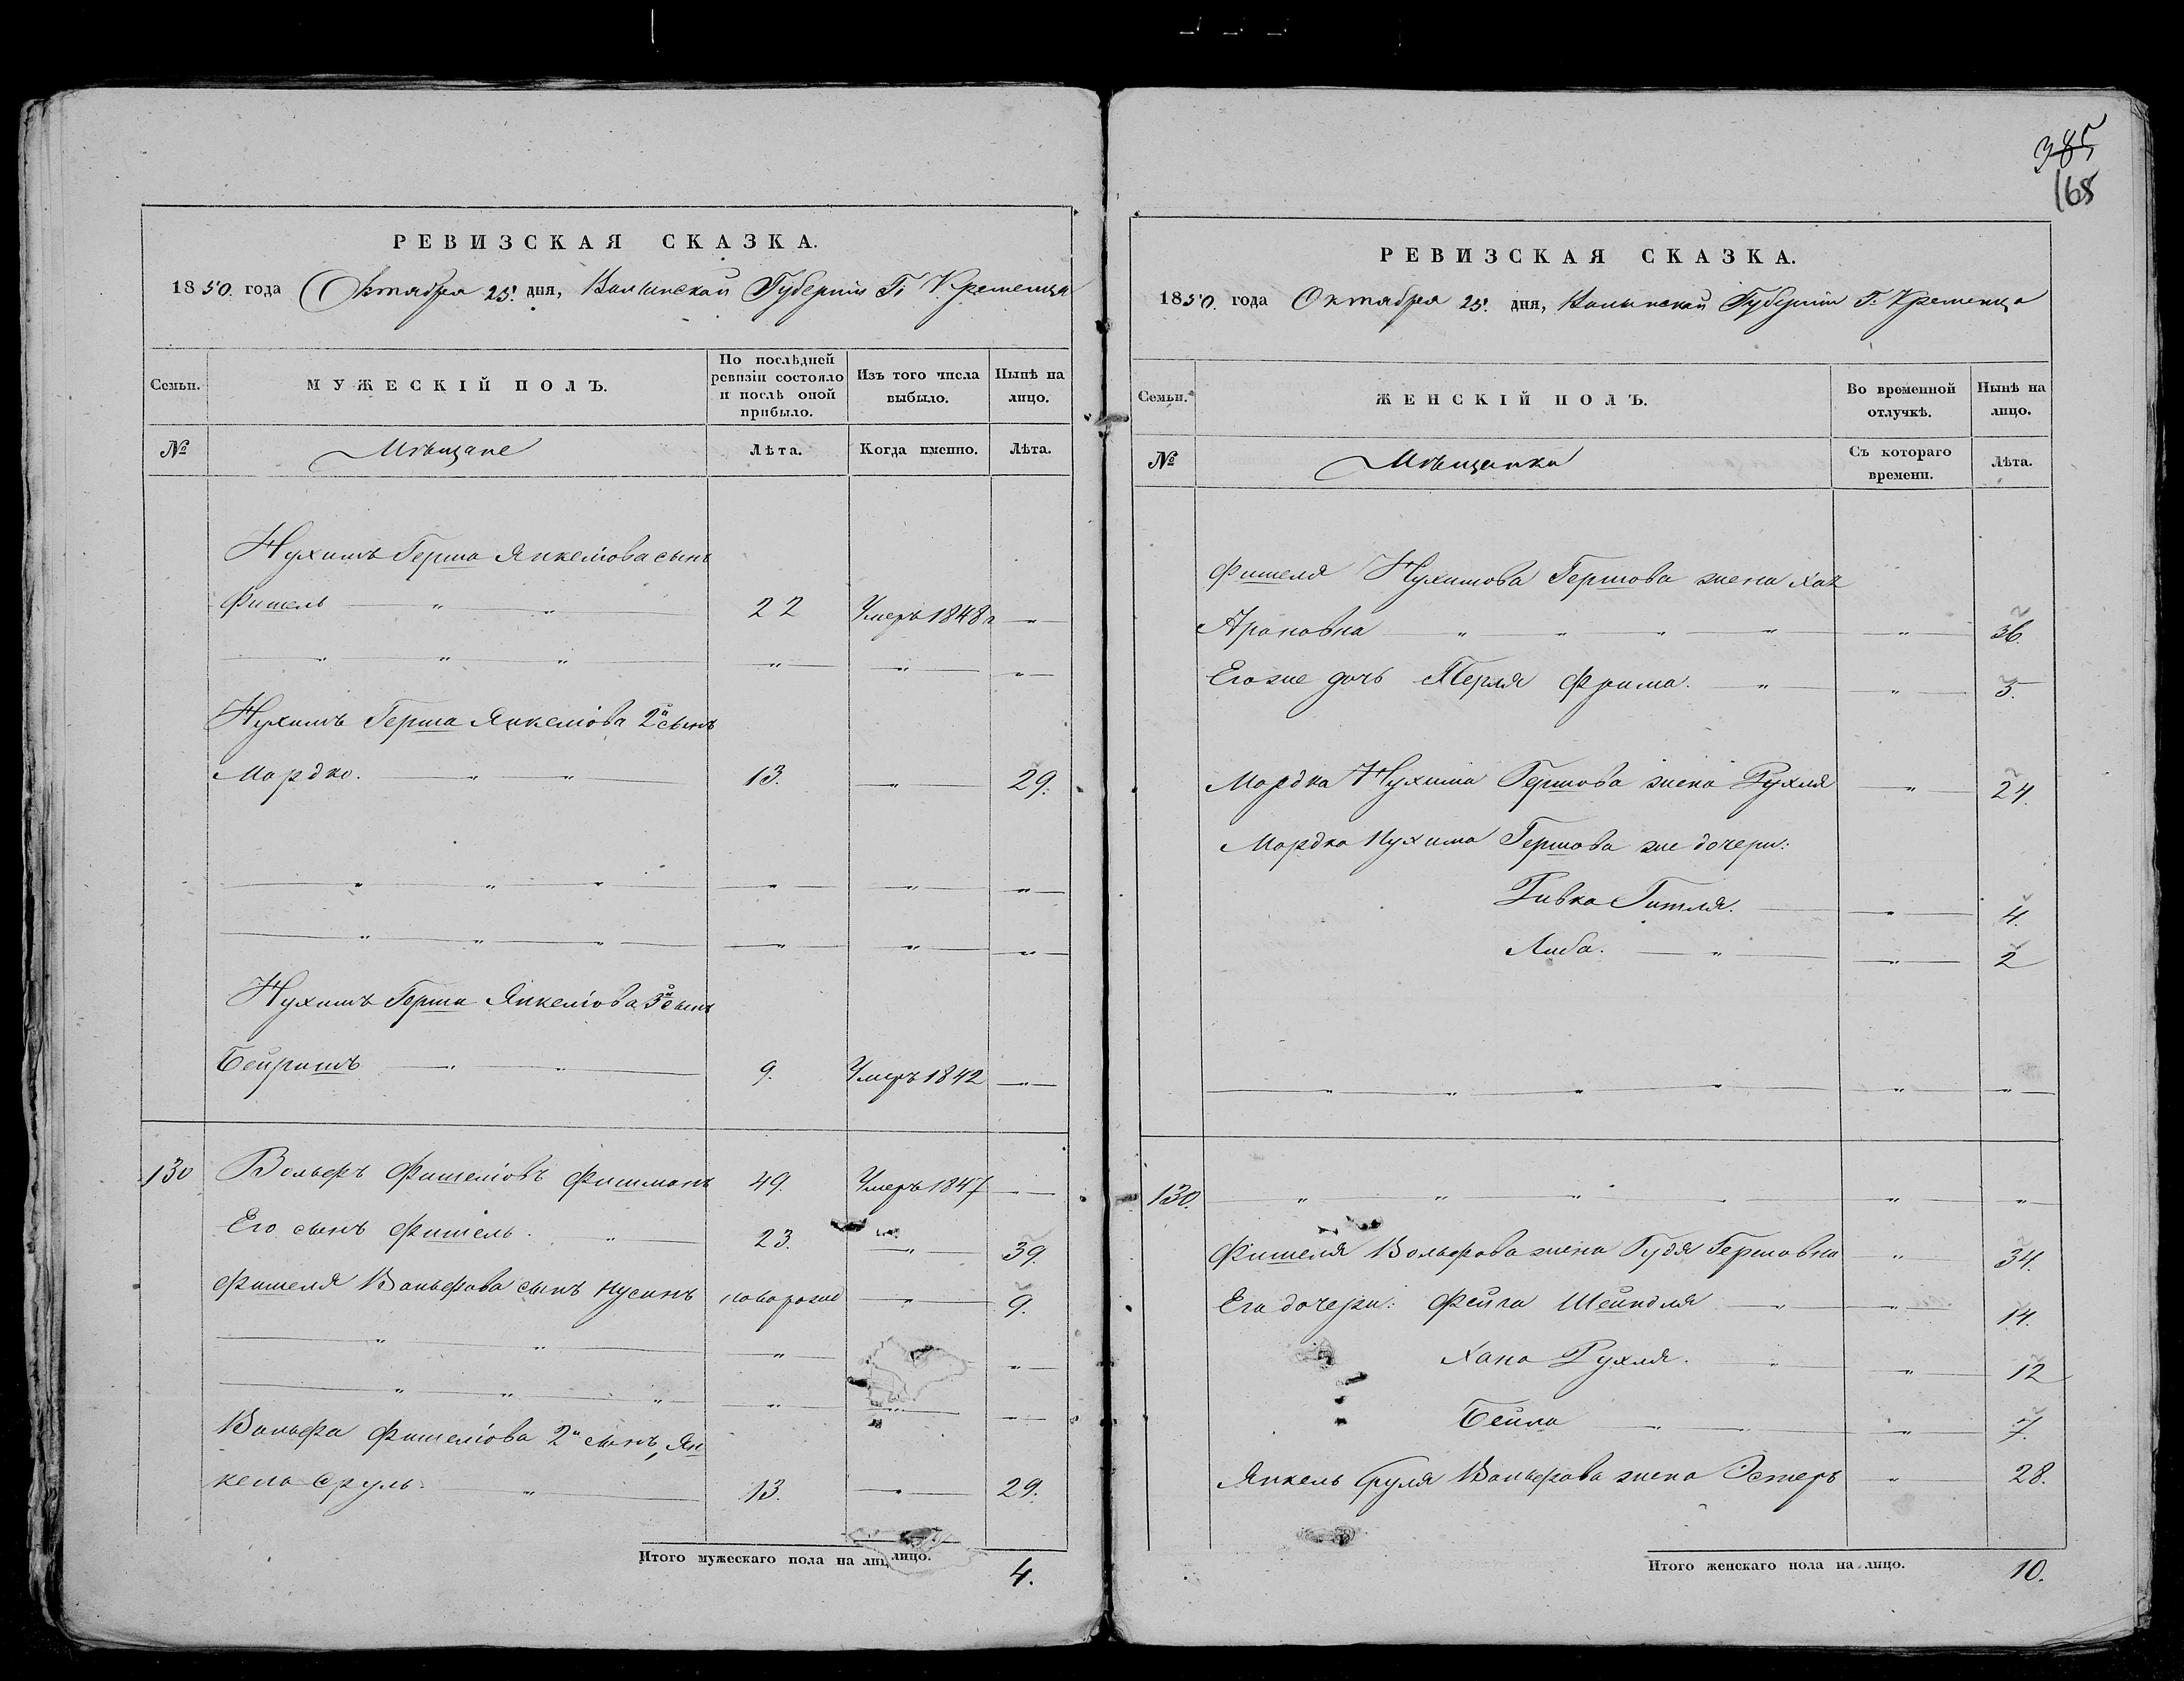 РЕВИЗСКАЯ СКАЗКА.
1850. года Октября 25. дня, Волынской Губернии Г. Кременца
Семьи. МУЖЕСКІЙ ПОЛЪ. По послѣдней ревизіи состояло и послѣ оной прибыло. Изъ того числа выбыло. Нынѣ на лицо.
№ Мѣщане Лѣта. Когда именно. Лѣта.
Нухимъ Герша Янкеліова сынъ
Фишель — " — " — 22 Умеръ 1848 г — " —
— " — " — " — — " — — " — — " —
Нухимъ Герша Янкеліова 2й сынъ
Мордко. — " — " — 13. — " — 29.
— " — " — " — — " — — " — — " —
— " — " — " — — " — — " — — " —
Нухимъ Герша Янкеліова 3й сынъ
Бейришъ — " — " — 9. Умеръ 1842 — " —
130 Вольфъ Фишеліовъ Фишманъ 49. Умеръ 1847 — " —
Его сынъ Фишель. — " — 23. — " — 39.
Фишеля Вольфова сынъ Нусинъ новорожд — " — 9.
— " — " — — " — — " —
— " — " — " — — " — — " — — " —
Вольфа Фишеліова 2й сынъ, Ян
кель Сруль — " — 13. — " — 29.
Итого мужескаго пола на лицо. 4.
385
168
РЕВИЗСКАЯ СКАЗКА.
1850. года Октября 25. дня, Волынской Губерніи Г. Кременца
Семьи. ЖЕНСКІЙ ПОЛЪ. Во временной отлучкѣ. Нынѣ на лицо.
№ Мѣщанки Съ котораго времени. Лѣта.
Фишеля Нухимова Гершова жена Хая
Ароновна — " — " — " — " — — " — 36.
Его же дочь Перля Фрима. — " — — " — 3.
Мордка Нухима Гершова жена Рухля — " — 24.
Мордка Нухима Гершова же дочери:
Ривка Гитля. — — " — 4.
Либа. — " — — " — 2
— " — " — " — " — — " — — " —
130. — " — " — " — — " — — " —
Фишеля Вольфова жена Гудя Гершовна — " — 34.
Его дочери: Фейга Шейндля — " — — " — 14.
Хана Рухля. — " — — " — 12
Бейла — " — — " — 7.
Янкель Сруля Вольфова жена Эстеръ — " — 28.
Итого женскаго пола на лицо. 10.